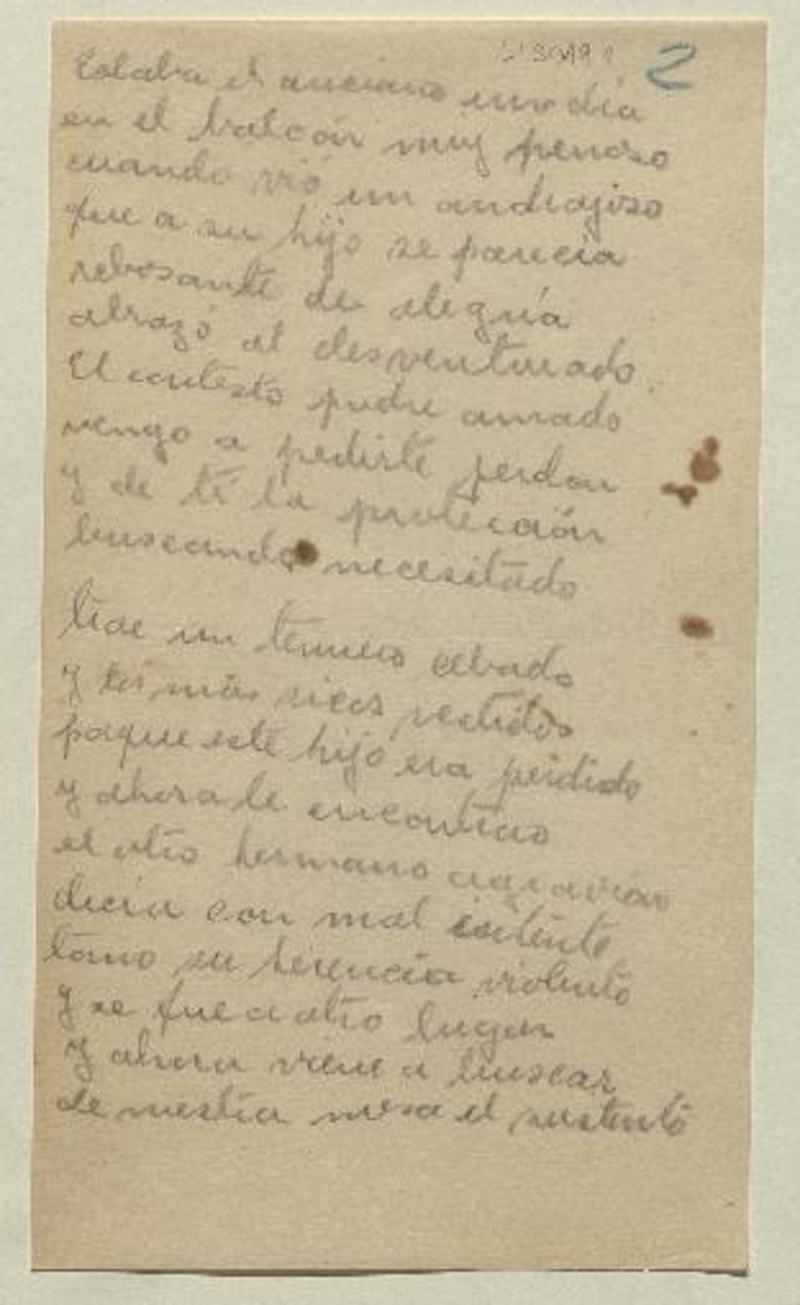 2
Estaba el anciano un dia
en el balcón muy penoso
cuando vió un andrajoso
que a su hijo se parecia
rebosante de alegria
abrazó al desventurado.
El contestó padre amado
vengo a pedirte perdon
y de ti la protección
buscando necesitado
trae un ternero cebado
y los más ricos vestidos
paque este hijo era perdido
y ahora le encontrao
el otro hermano agraviao
decia con mal intento
tomo su herencia violento
y se fue a otro lugar
y ahora viene a buscar
de nuestra mesa el sustento